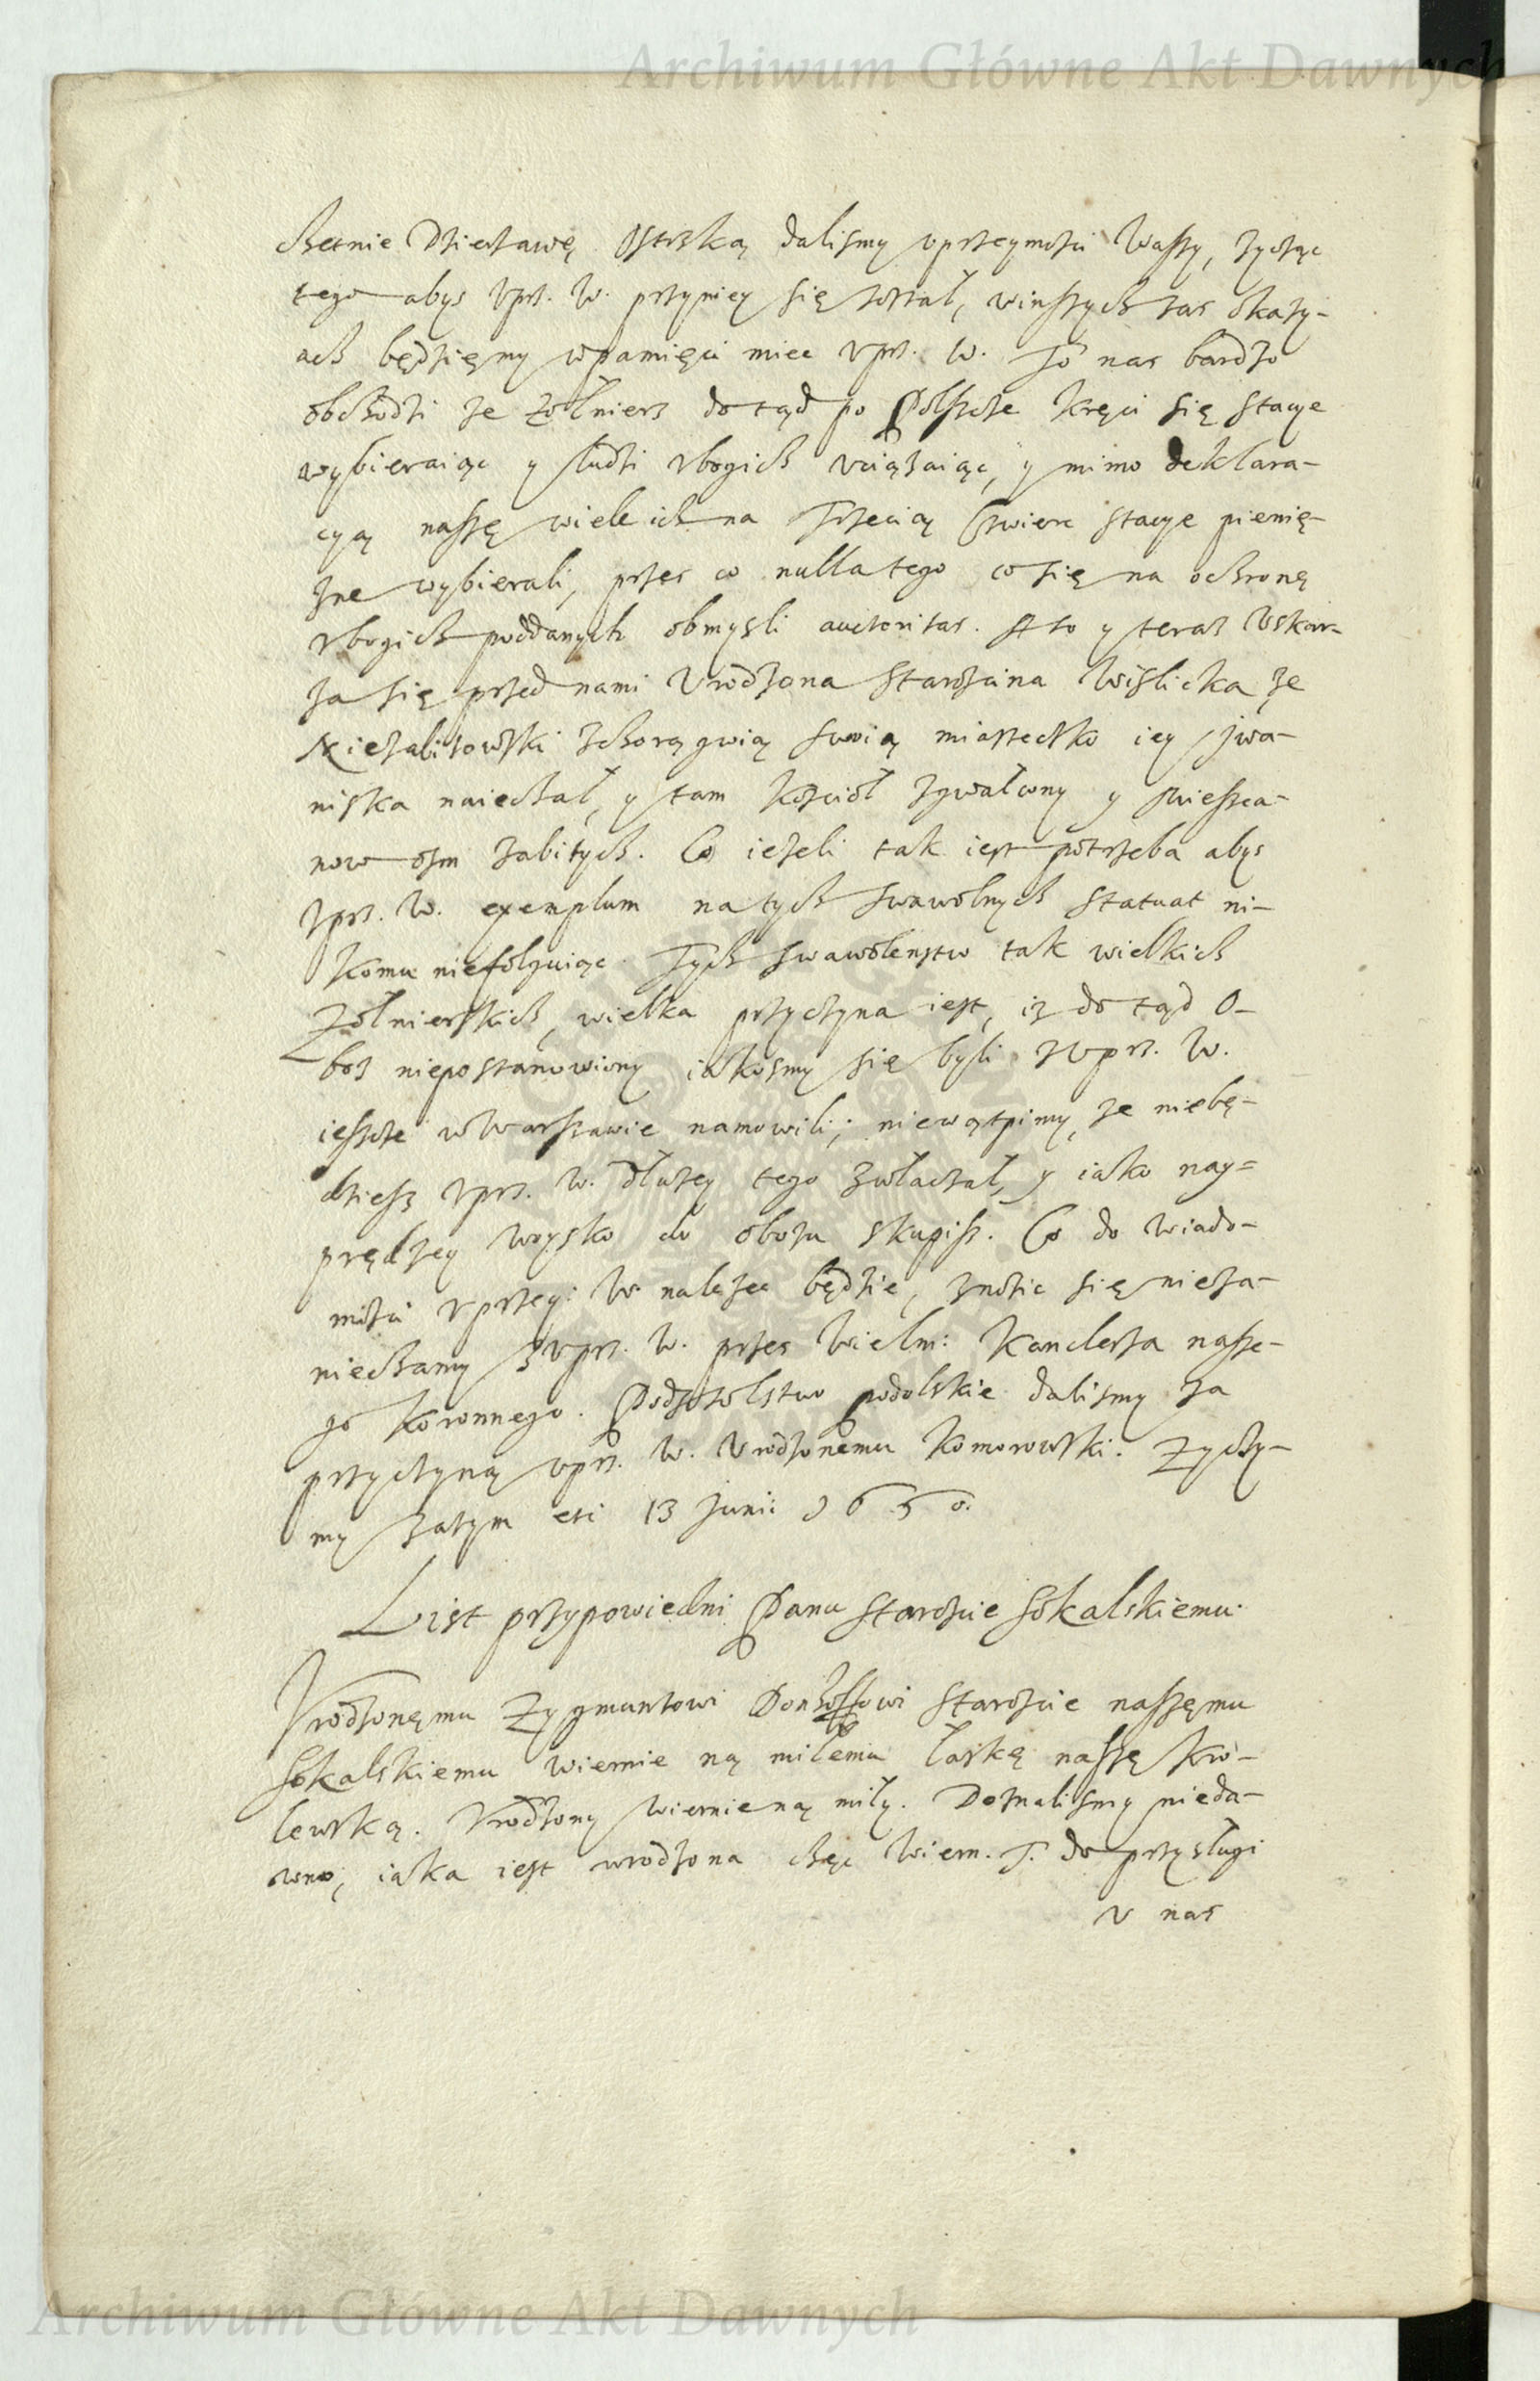 Archiwum Główne Akt Dawnych
chetnie Dzierzawę Ostrską dalismy vprzeymosci Waszy, zycząc
tego abys vprz. W. przyniey się został, winszych zas okazy-
ach będzięmy wpamięci miec vprz. W. To nas bardzo
obchodzi ze Zołnierz dotąd po Polszcze kręci się stacye
wybieraiąc y ludzi vbogich vciązaiąc, y mimo deklara-
cyą naszę wiele ich na Trzecią Czwierc stacye pienię-
zne wybierali, przes co nulla tego co się na ochronę
vbogich poddanych obmysli auctoritas. Ato y teraz Vskar-
za się przed nami Vrodzona Starościna Wislicka ze
zchorągwią swoią miasteczko iey Iwa-
niska naiechał, y tam kościoł zgwałcony y Mieszcza-
now osm zabitych. Co iezeli tak iest potrzeba abys
vprz. W. exemplum natych swawolnych statuat ni-
komu niefolguiąc. Tych swawolenstw tak wielkich
Zołnierskich, wielka przyczyna iest, iz dotąd O-
boz niepostanowiony iakosmy się byli zvprz. W.
ieszcze wWarszawie namowili; niewątpimy, ze niebę-
dziesz vprz. W. dłuzey tego zwłaczał, y iako nay-
prędzey woysko do obozu skupisz. Co do wiado-
mosci vprzey: W. nalezec będzie, znosic się nieza-
niechamy zvprz. W. przes Wielm: Kanclerza nasze-
go koronnego. Podstolstwo podolskie dalismy za
przyczyną vprz. W. Vrodzonemu Komorowski: Zyczy-
my zatym etc 13 Junii 1650.
List przypowiedni Panu Staroscie Sokalskiemu.
Vrodzonęmu Zygmuntowi Donhoffowi Staroscie naszęmu
Sokalskiemu wiernie ną miłemu łaskę naszę kro-
lewską. Vrodzony wiernie ną miły. Doznalismy nieda-
wno, iaka iest wrodzona chęc Wiern. T. do przysługi
v nas
Archiwum Główne Akt Dawnych